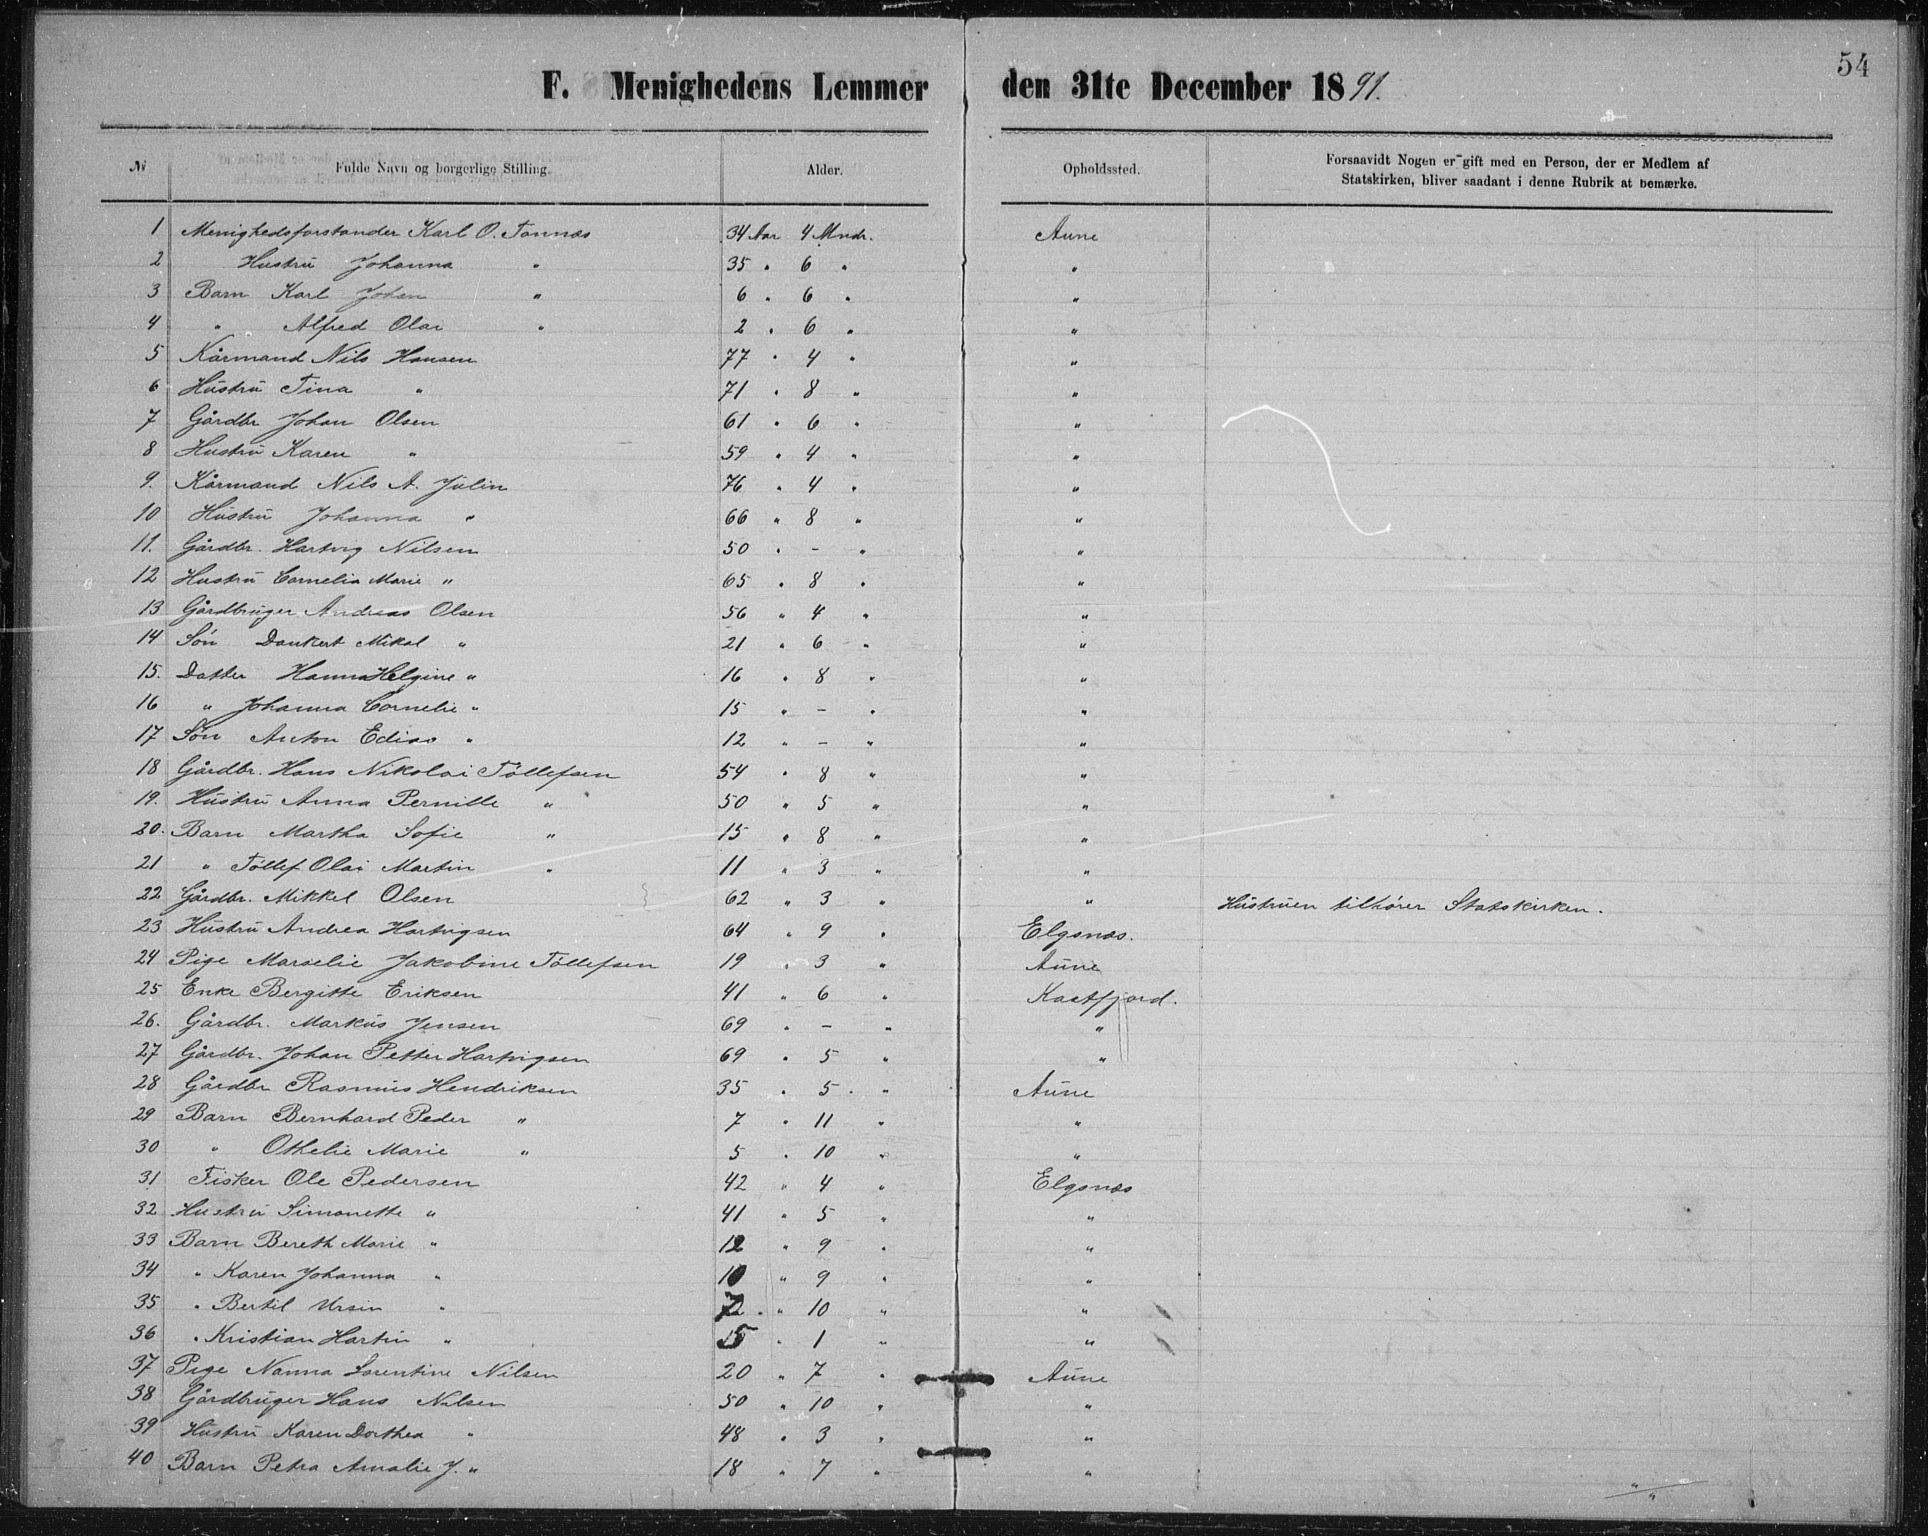 54
F. Menighedens Lemmer den 31te December 1891.
№ Fulde Navn og borgerlige Stilling. Alder. Opholdssted. Forsaavidt Nogen er gift med en Person, der er Medlem af
Statskirken, bliver saadant i denne Rubrik at bemærke.
1 Menighedsforstander Karl O. Tonnæs 34 Aar 4 Mndr. Aune
2 Hustru Johanna " 35 " 6 " "
3 Barn Karl Johan " 6 " 6 " "
4 " Alfred Olai " 2 " 6 " "
5 Kårmand Nils Hansen 77 " 4 " "
6 Hustru Tina " 71 " 8 " "
7 Gårdbr Johan Olsen 61 " 6 " "
8 Hustru Karen " 59 " 4 " "
9. Kårmand Nils A. Julin 76 " 4 " "
10 Hustru Johanna " 66 " 8 " "
11. Gårdbr. Hartvig Nilsen 50 " - " "
12 Hustru Cornelia Marie " 65 " 8 " "
13 Gårdbruger Andreas Olsen 56 " 4 " "
14 Søn Dankert Mikal " 21 " 6 " "
15. Datter Hanna Helgine " 16 " 8 " "
16 " Johanna Cornelie " 15 " - " "
17 Søn Anton Edias " 12 " - " "
18 Gårdbr. Hans Nikolai Tøllefsen 54 " 8 " "
19. Hustru Anna Pernille " 50 " 5 " "
20. Barn Martha Sofie " 15 " 8 " "
21 " Tøllef Olai Martin " 11 " 3 " "
22 Gårdbr. Mikkel Olsen 62 " 3 " " Hustruen tilhører Statskirken.
23 Hustru Andrea Hartvigsen 64 " 9 " Elgsnæs.
24 Pige Marselie Jakobine Tøllefsen 19 " 3 " Aune
25 Enke Bergitte Eriksen 41 " 6 " Kastfjord.
26. Gårdbr. Markus Jensen 69 " - " "
27 Gårdbr. Johan Petter Hartvigsen 69 " 5 " "
28 Gårdbr Rasmus Hendriksen 35 " 5 " Aune
29 Barn Bernhard Peder " 7 " 11 " "
30 " Othelie Marie " 5 " 10 " "
31 Fisker Ole Pedersen 42 " 4 " Elgsnæs
32 Hustru Simonette " 41 " 5 " "
33 Barn Bereth Marie " 12 " 9 " "
34 " Karen Johanna " 10 " 9 " "
35 " Bertil Ursin " 7 " 10 " "
36 " Kristian Hartin " 5 " 1 " "
37 Pige Nanna Sorentine Nilsen 20 " 7 " Aune
38 Gårdbruger Hans Nilsen 50 " 10 " "
39 Hustru Karen Dorthea " 48 " 3 " "
40 Barn Petra Amalie J. " 18 " 7 " "